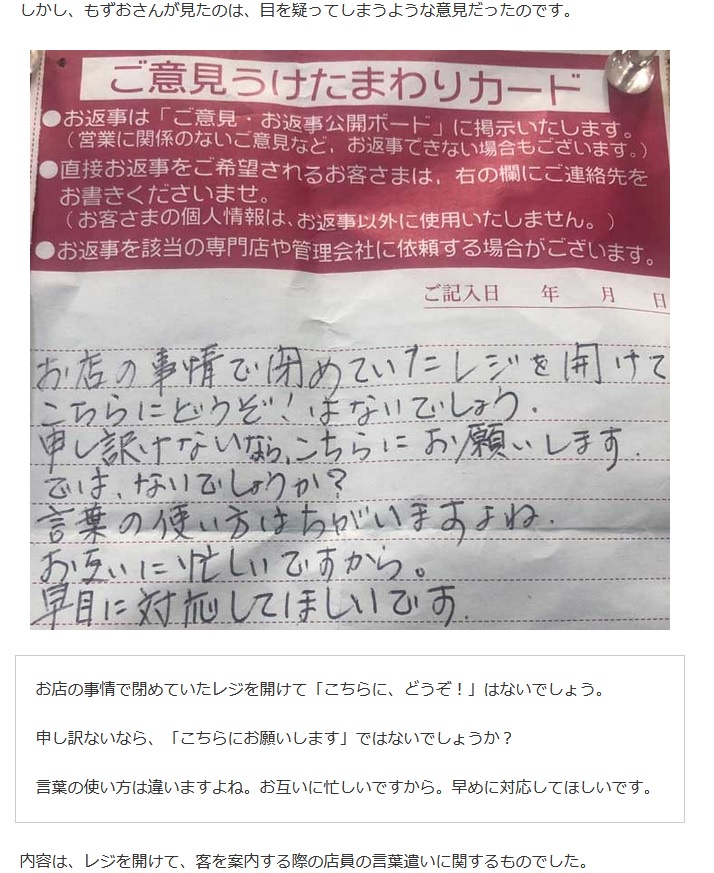 しかし、もずおさんが見たのは、目を疑ってしまうような意見だったのです。
ご意見うけたまわりカード
●お返事は「ご意見・お返事公開ボード」に掲示いたします。
（営業に関係のないご意見など、お返事できない場合もございます。）
●直接お返事をご希望されるお客さまは、右の欄にご連絡先を
お書きくださいませ。
（お客さまの個人情報は、お返事以外に使用いたしません。）
●お返事を該当の専門店や管理会社に依頼する場合がございます。
ご記入日　年　月　日
お店の事情で閉めていたレジを開けて
こちらにどうぞ！はないでしょう.
申し訳けないなら、こちらにお願いします.
では、ないでしょうか？
言葉の使い方はちがいますよね.
お互いに忙しいですから。
早目に対応してほしいです.
お店の事情で閉めていたレジを開けて「こちらに、どうぞ！」はないでしょう。
申し訳ないなら、「こちらにお願いします」ではないでしょうか？
言葉の使い方は違いますよね。お互いに忙しいですから。早めに対応してほしいです。
内容は、レジを開けて、客を案内する際の店員の言葉遣いに関するものでした。